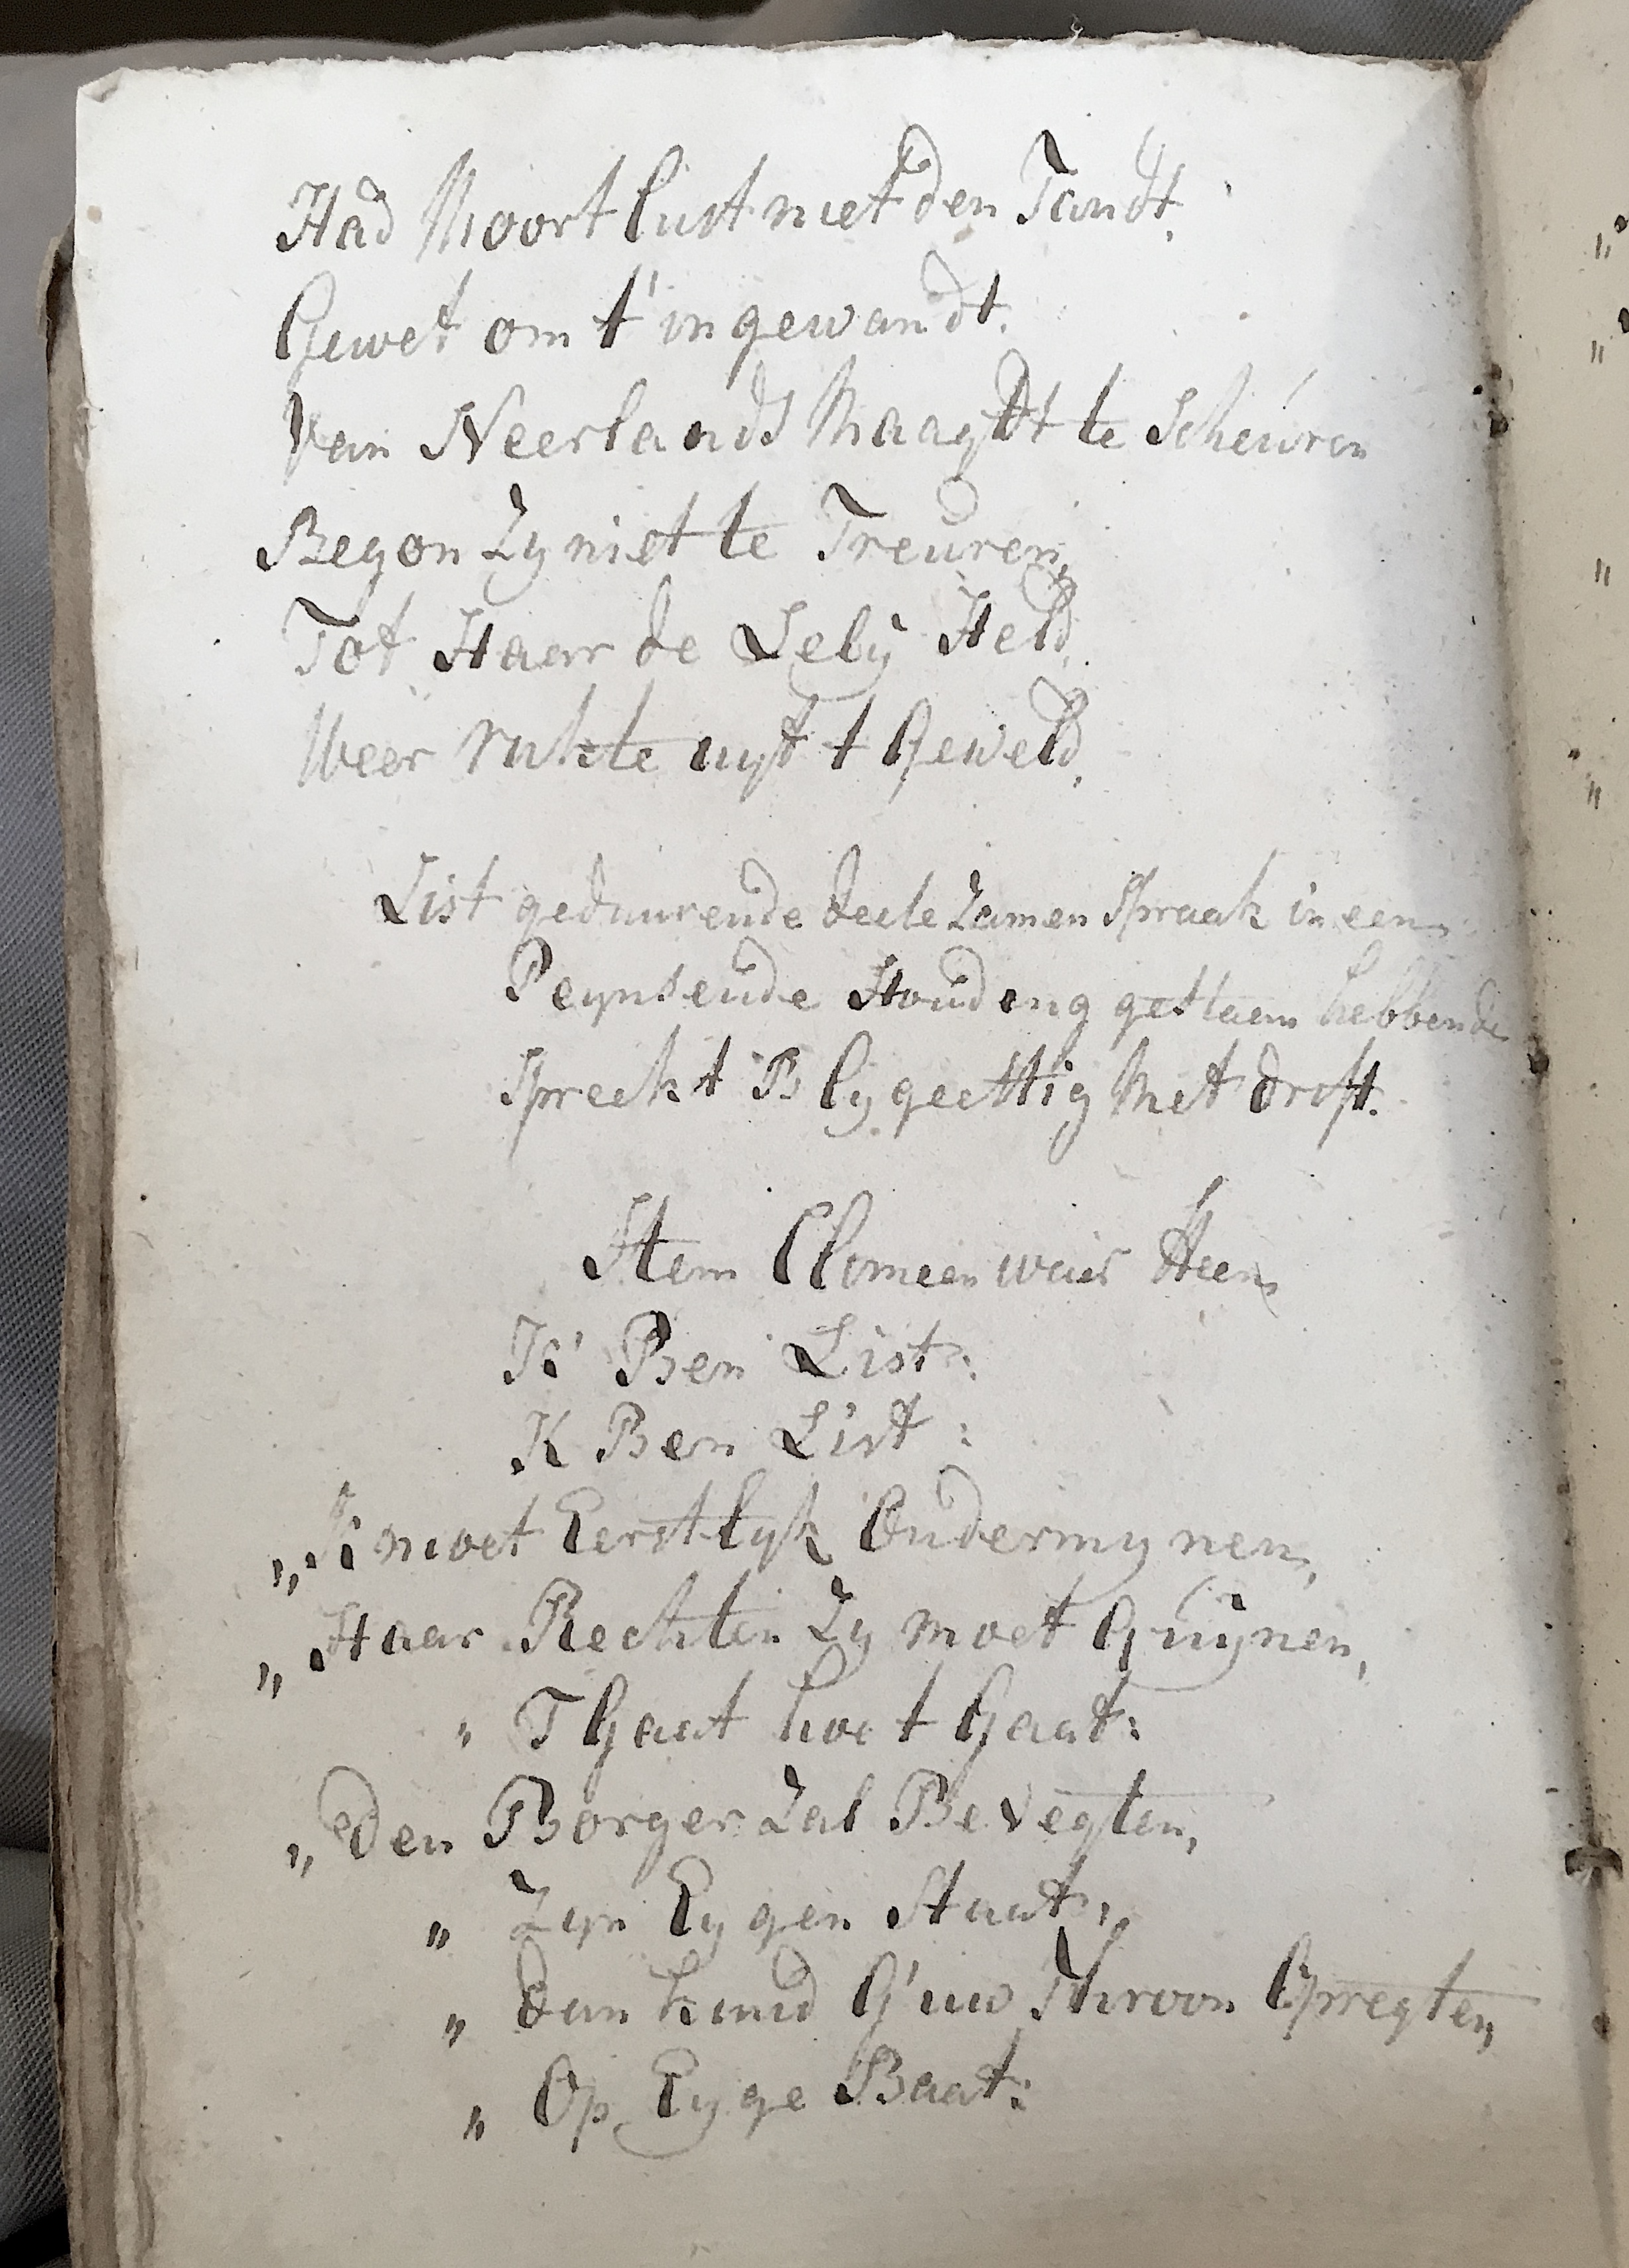 Had Moort lust met den Tandt,
Gewet om t' ingewandt.
Van Neerlands Maagdt te Scheuren
Begon Zy niet te Treuren,
Tot Haar de Lely Held,
Weer rukte uyt t Geweld,
List geduurende deese Zamen Spraak in een
Peynsende Houding gestaen hebbende
Spreekt Blygeestig Met drift.
Stem Climeen waar Heen
K' Ben List:
K Ben List:
„ K moet Eerstlyk Ondermynen,
„ Haar Rechten Zy moet Quynen,
„ T Gaat hoe t Gaat:
„ Den Borger Zal Bevegten,
„ Zyn Eygen Staat:
„ Dan kund G' uw Throon Opregten,
„ Op Eyge Baat: